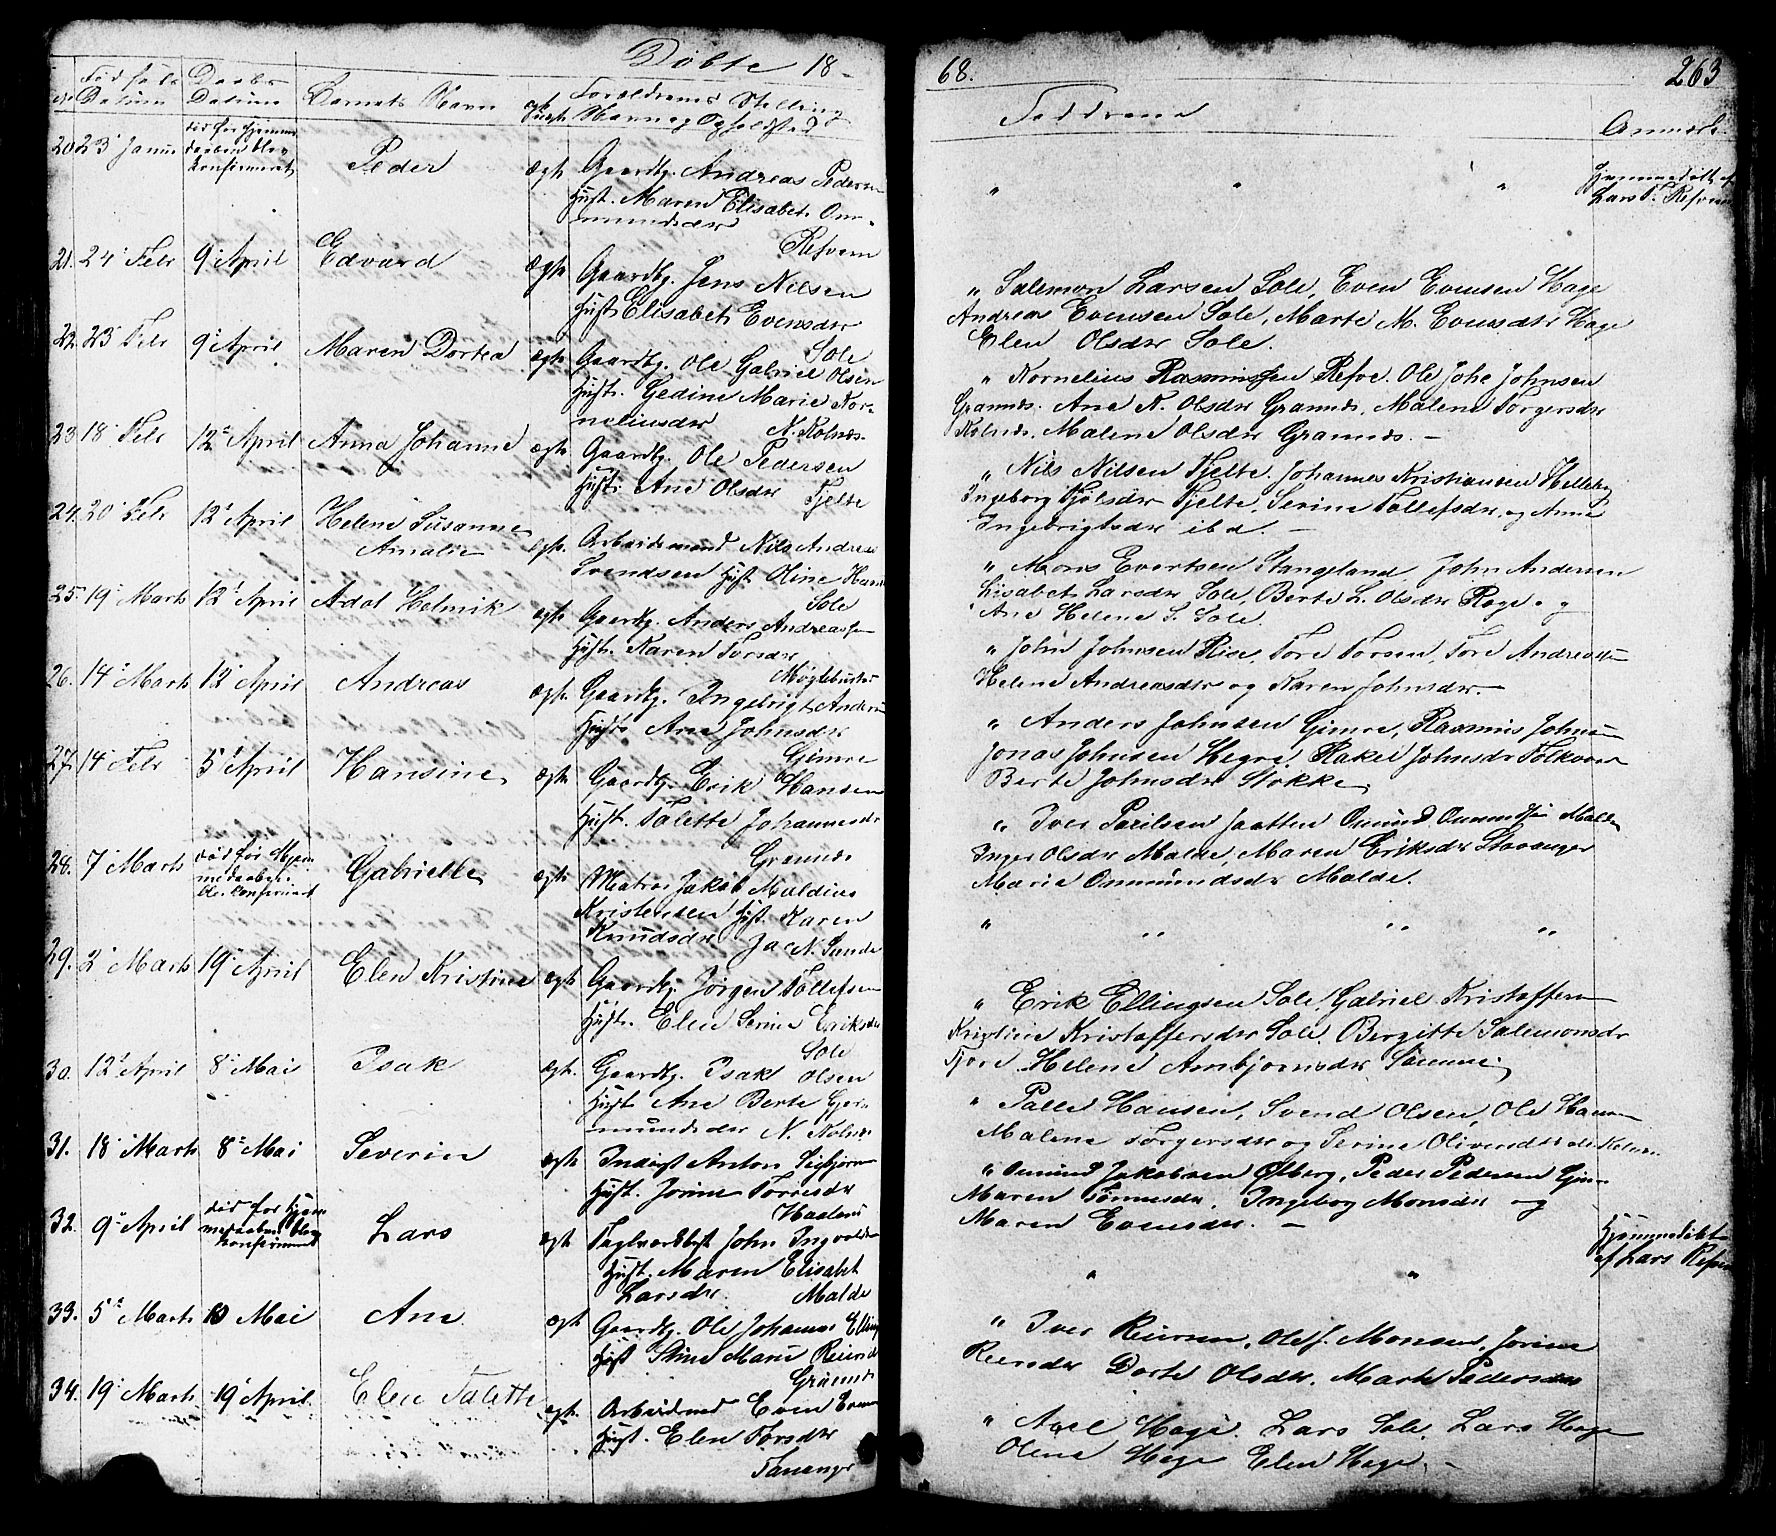 Döbte 18
68.
263
Födsels Datum
Daabs Datum
Barnets Navn
Forældrens Stilling
Navn og Opholdsted
Faddrene
Anmærk.
20. 23' Janur
død før Hjemme
daaben blev
konfirmeret
Peder
ægte
Gaardbg. Andreas Pedersen
Hust. Maren Elisabet Om-
mundsdr
Refvem
" " "
Hjemmedøbt af
Lars T. Refvem
21. 24' Febr 9' April Edvard ægte
Gaardbg. Jens Nilsen
Hust. Elisabet Evensdr
Sole
" Salemon Larsen Sole, Even Evensen Hage
Andreas Evensen Sole, Marte M. Evensdtr Hage
Elen Olsdr Sole.
22. 23' Febr 9' April Maren Dortea ægte
Gaardbg. Ole Gabriel Olsen
Hust. Gedine Marie Kor-
neliusdr N. Kolnes
" Kornelius Rasmussen Refve. Ole Johs Johnsen
Grannes. Ane N. Olsdr Grannes, Malene Torgersdr
Kolnes, Malene Olsdr Grannes. -
23. 18' Febr 12' April Anna Johanne ægte
Gaardbg. Ole Pedersen
Hust. Ane Olsdr Tjelte
" Nils Nilsen Tjelte. Johannes Kristiansen
Ingeborg Olsdr Tjelte, Serine Tollefsdr. og Anne
Ingebrigtsdr ibd. -
24. 20' Febr 12' April Helene Susanne
Amalie
ægte
Arbeidsmand Nils Andreas
Svendsen Hust. Oline Hans
Sole
" Mons Evertsen Stangeland, John Andersen
Lisabet Larsdr Sole, Berte L. Olsdr Røge. og
Ane Helene S. Sole.
25. 19' Marts 12' April Adol Helmik ægte
Gaardbg. Anders Andreassen
Hust. Karen Torsdr
Møglebustad
" John Johnsen Rise, Tore Torsen, Tore Andreassen
Helene Andreasdtr og Karen Johnsdr. -
26. 14' Marts 12' April Andreas ægte
Gaardbg. Ingebrigt Anders
Hust. Ane Johnsdr
Gimre
" Anders Johnsen Gimre, Rasmus Johnsen
Jonas Johnsen Hegre, Rakel Johnsdr Folkvor
Berte Johnsdr Stokke,
27. 14' Febr 5' April Hansine, ægte
Gaardbg. Erik Hansen
Hust. Talette Johannesdr
Grannes
" Iver Poulsen Jaatten Omund Omundsen Malde
Inger Olsdr Malde, Maren Eriksdr Stavanger
Marie Ommundsdr Malde.
28. 7' Marts
død før Hjem-
medaaben
blev konfirmeret
Gabrielle ægte
Matros Jakob Maldius
Kristensen Hust. Karen
Knudsdr N. Sunde
" " " "
29. 2' Marts 19' April Elen Kristine ægte
Gaardbg. Jørgen Tollefsen
Hust. Elen Serine Eriksdr
Sole
" Erik Ellingsen Sole, Gabriel Kristoffersen
Kristine Kristoffersdr Sole, Bergitte Salemonsdr
Tjore Helene Asbjørnsdr Sømme,
30. 12' April 8' Mai Isak ægte
Gaardbg. Isak Olsen
Hust Ane Berte Gor-
mundsdr N. Kolnes
" Palle Hansen, Svend Olsen, Ole Hansen
Malene Torgersdr og Serine Olivendtr alle Kolnes
31. 18' Marts 8' Mai Severin ægte
Inderst Anton Sigbjørn
Hust. Jorine Torresdr
Haaland
" Omund Jakobsen Østberg, Peder Pedersen
Maren Tønnesdr. Ingeborg Monsdr og
Maren Evensdr. -
32. 9' April
død før Hjem-
medaaben blev
konfirmeret
Lars ægte
John Ingvaldsen
Hust. Maren Elisabet
Larsdr. Malde
" "
Hjemmedøbt
af Lars Refvem
33. 5' Marts 10 Mai Ane ægte
Gaardbg. Ole Johannes Elling
Hust Stine Marie Reiersdr
Grannes
" Iver Reiersen, Ole J. Monsen, Jorine
Reiersdr Dorte Olsdr. Marte Pedersdr
34. 19' Marts 19' April. Elen Talette ægte
Arbeidsmd Even Evensen
Hust. Elen Torsdr
Tananger
" Axel Hage. Lars Sole. Lars Hage
Olene Hage Elen Hage. -